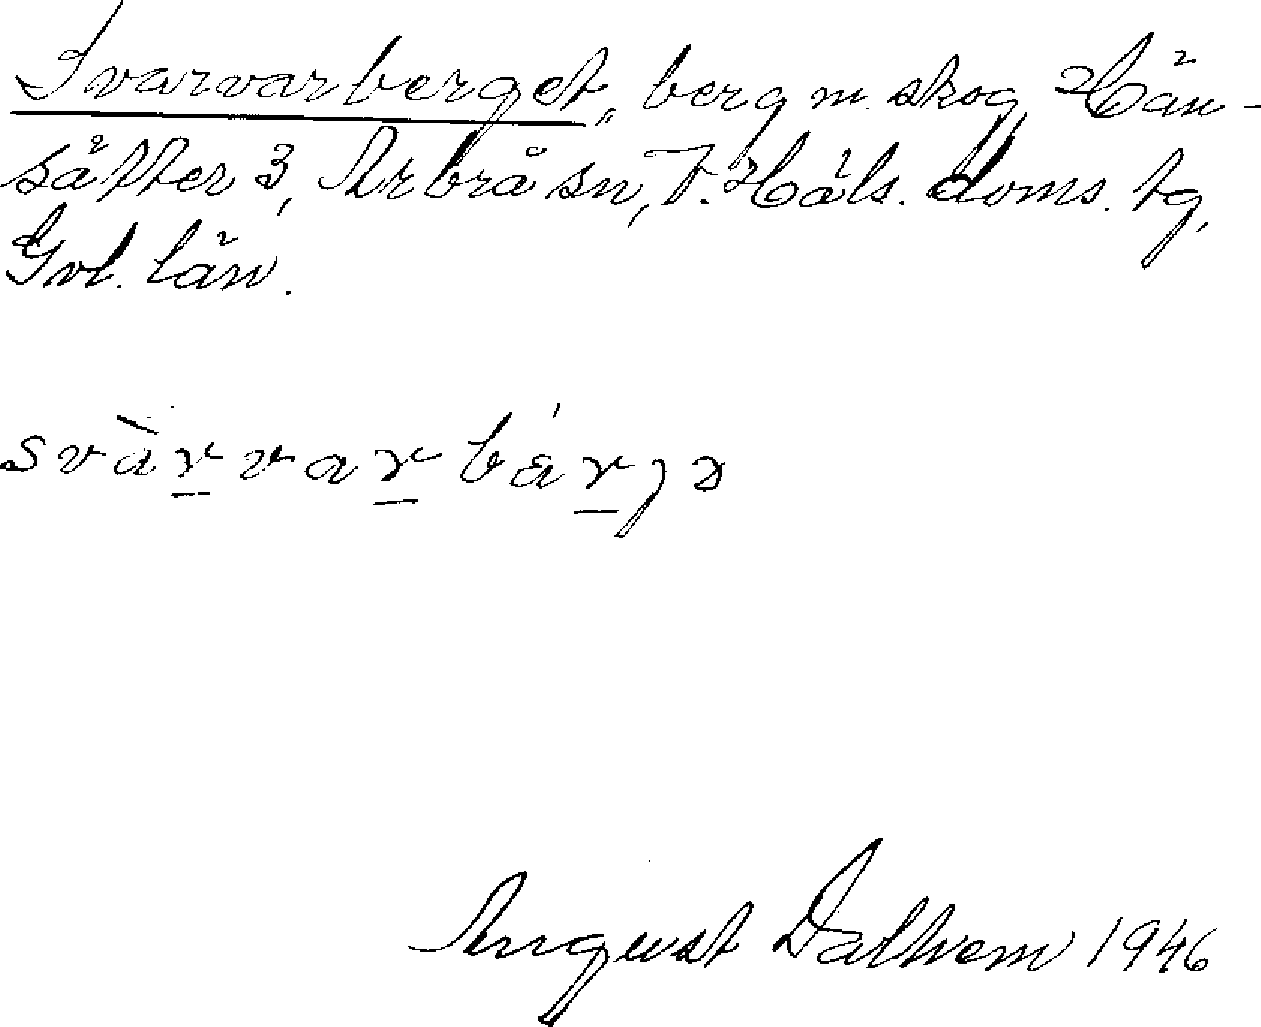 Svarvarberget, berg m. skog, Hän-
sätter 3, Arbrå sn, V. Häls. doms. tg,
Gvl. län.
svàr̲var̲bár̲jə
August Dalhem 1946